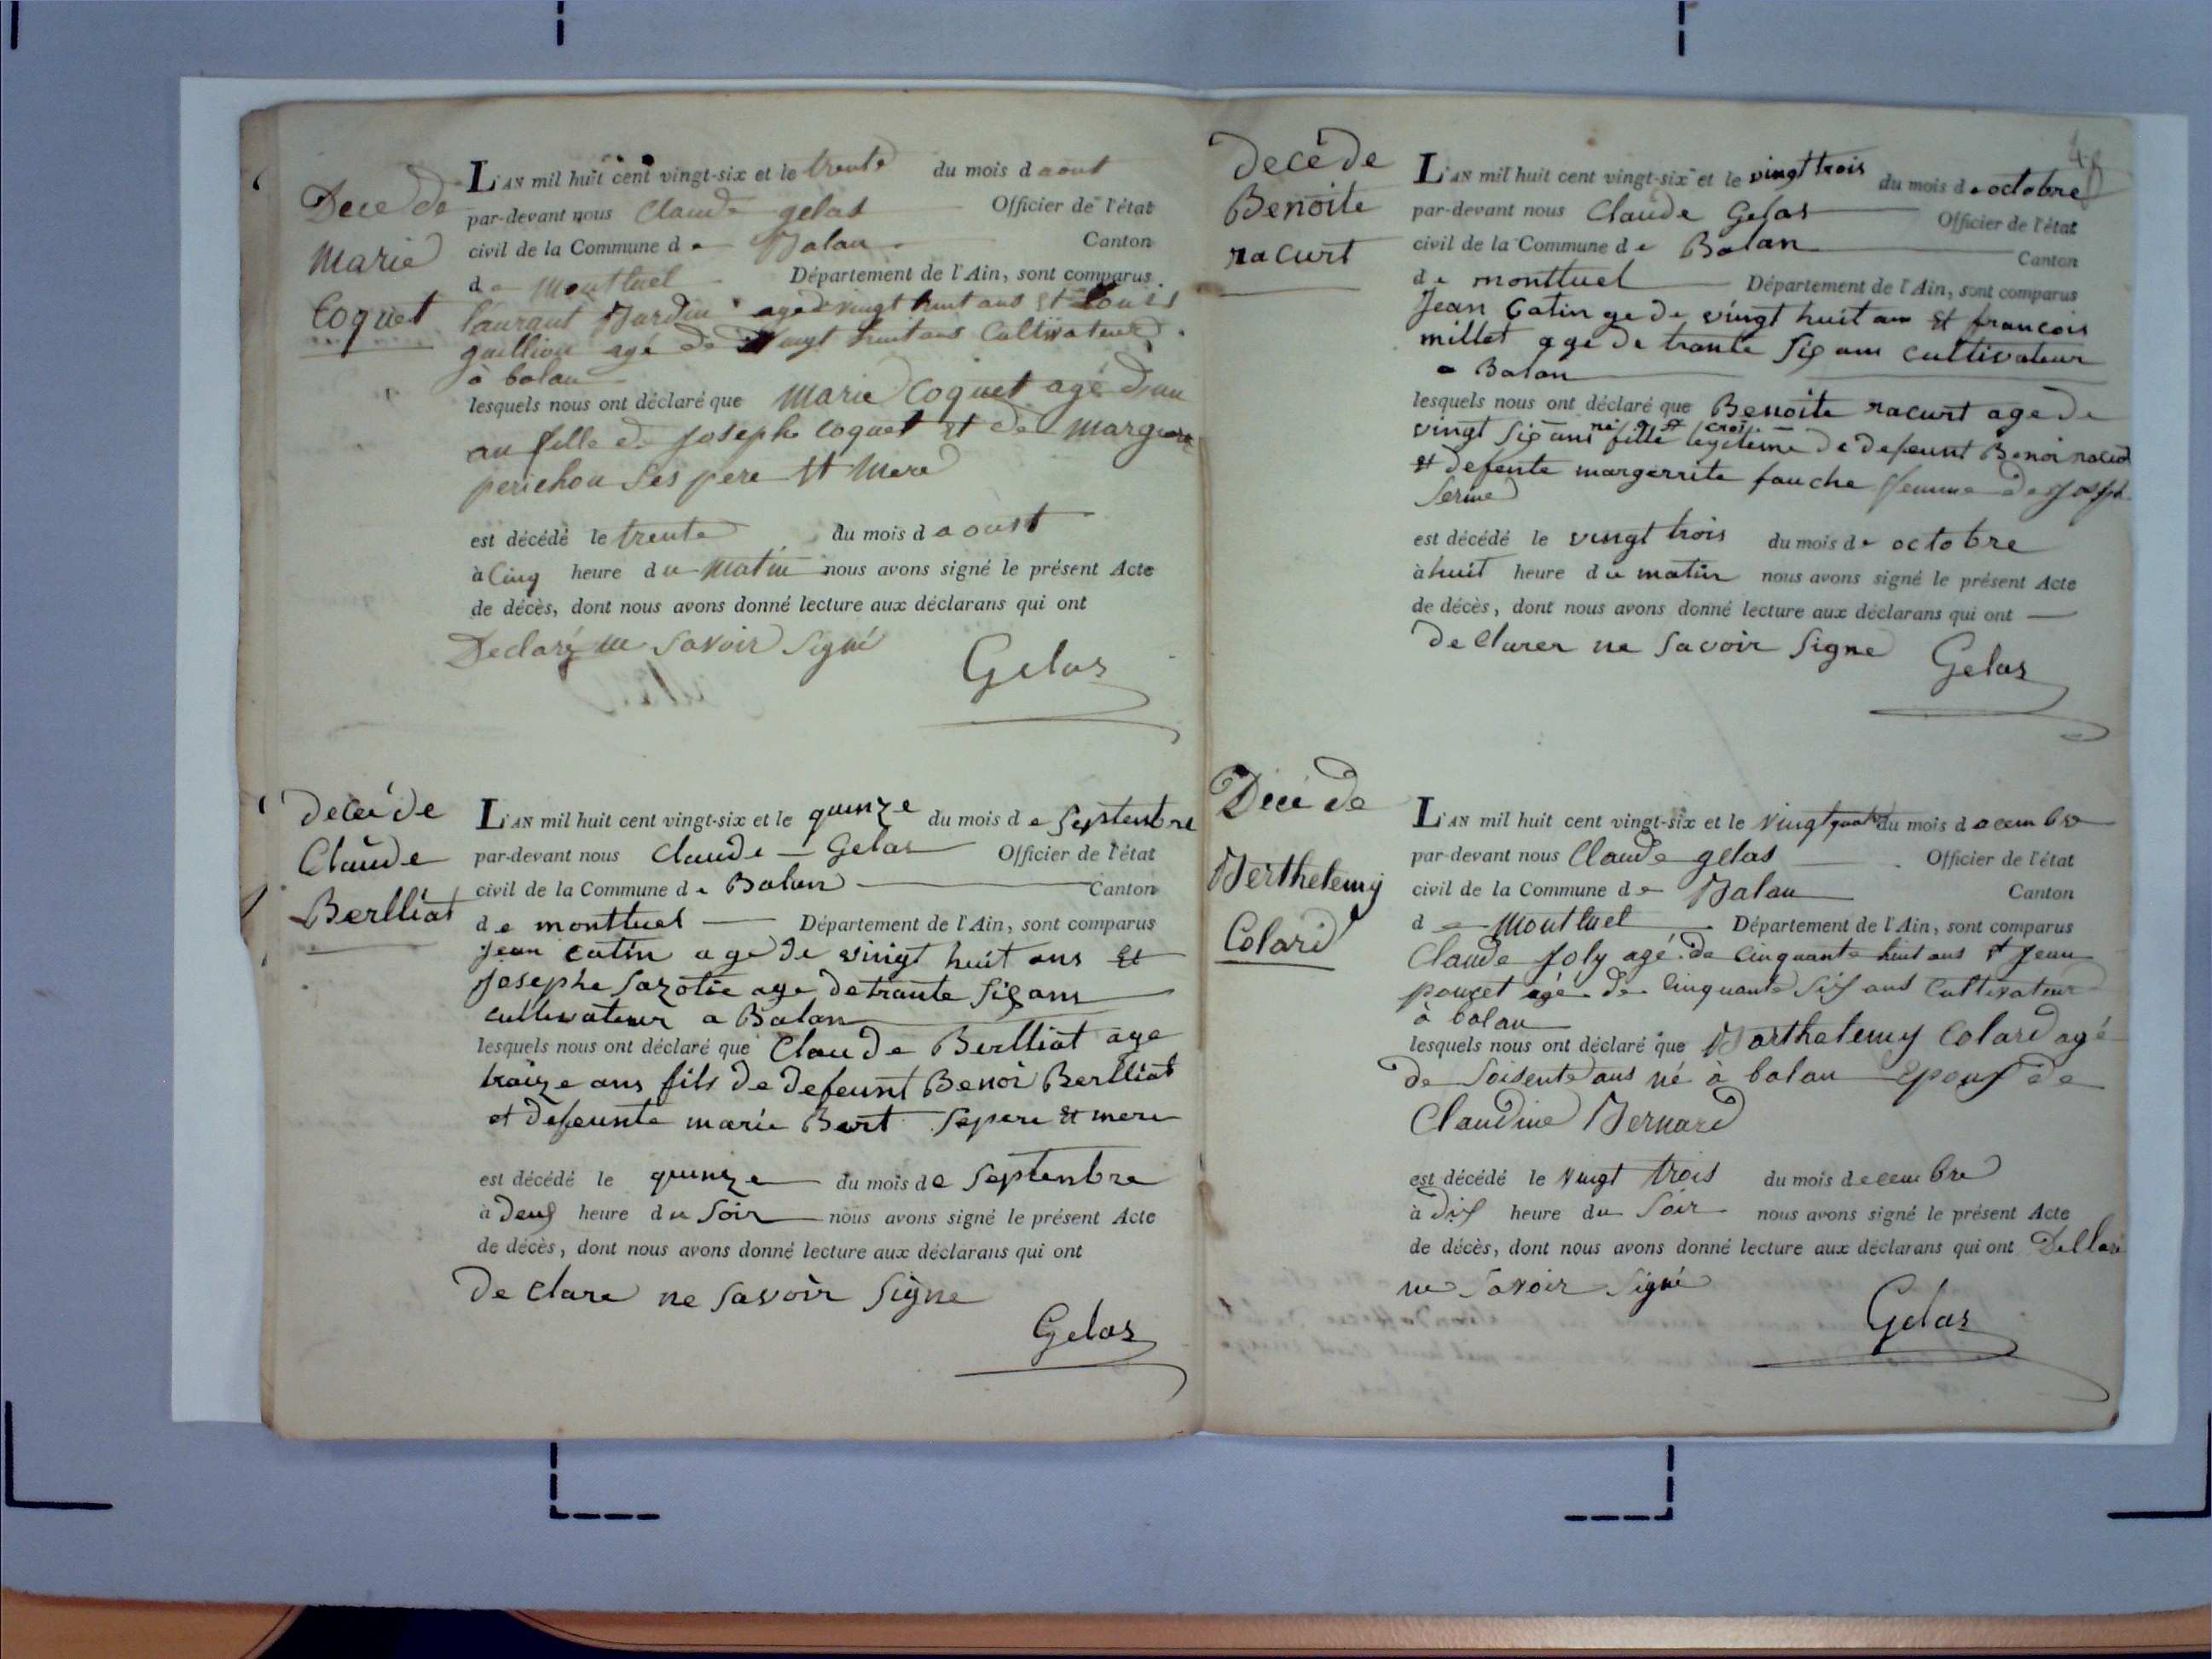 Decé de
Marie
Coquet
L'AN mil huit cent vingt-six et le trente du mois d aout
par-devant nous Claude gelas Officier de l'état
civil de la Commune d e Balan Canton
d e Montluel Département de l'Ain, sont comparus
laurant Jardin agé vingt huit ans et Louis
guillion agé de vingt huit ans Cultivateur
à balan
lesquels nous ont déclaré que Marie Coquet agé d'un
an fille de Joseph Coquet et de
perichon Ses pere et Mere
est décédé le trente du mois d aoust
à Cinq heure du Matin nous avons signé le présent Acte
de décès, dont nous avons donné lecture aux déclarans qui ont
Declaré ne Savoir Signé
Gelas
decéde
Claude
Berlliat
L'AN mil huit cent vingt-six et le quinze du mois d e Septenbre
par-devant nous Claude Gelas Officier de l'état
civil de la Commune d e Balan Canton
d e monttuel Département de l'Ain, sont comparus
Jean Catin age de vingt huit ans et
Josephe Sazotie age de trante Six ans
cultivateur a Balan
lesquels nous ont déclaré que Claude Berlliat age
traize ans fils de defeunt Benoi Berlliat
et defeunte marie Bert Sepere et mere
est décédé le quinze du mois de Septenbre
à deux heure du Soir nous avons signé le présent Acte
de décès, dont nous avons donné lecture aux déclarans qui ont
de clare ne Savoir Signe
Gelas
decéde
Benoite
racurt
L'AN mil huit cent vingt-six et le vingt trois du mois d e octobre
par-devant nous Claude Gelas Officier de l'état
civil de la Commune d e Balan Canton
d e monttuel Département de l'Ain, sont comparus
Jean Catin ge de vingt huit an et francois
millet age de trante Six ans cultivateur
a Balan
lesquels nous ont déclaré que Benoite racurt age de
vingt Six ans fille legiteime de defeunt Benoi racurt
et defente margerrite fauche femme de Joseph
Serine
est décédé le vingt trois du mois d e octobre
à huit heure du matin nous avons signé le présent Acte
de décès, dont nous avons donné lecture aux déclarans qui ont
de clarer ne Savoir Signe
Gelas
Décé de
Berthelemy
Colard
L'AN mil huit cent vingt-six et le vingt quatre du mois decembre
par-devant nous Claude gelas Officier de l'état
civil de la Commune d e Balan Canton
d e Montluel Département de l'Ain, sont comparus
Claude Joly agé de Cinquante huit ans et Jean
pouget agé de Cinquante Six ans Cultivateur
à balan
lesquels nous ont déclaré que Barthelemy Colard agé
de Soisente ans né à balan Epoux de
Claudine Bernard
est décédé le vingt trois du mois decembre
à dix heure du Soir nous avons signé le présent Acte
de décès, dont nous avons donné lecture aux déclarans qui ont Déclaré
ne Savoir Signé
Gelas